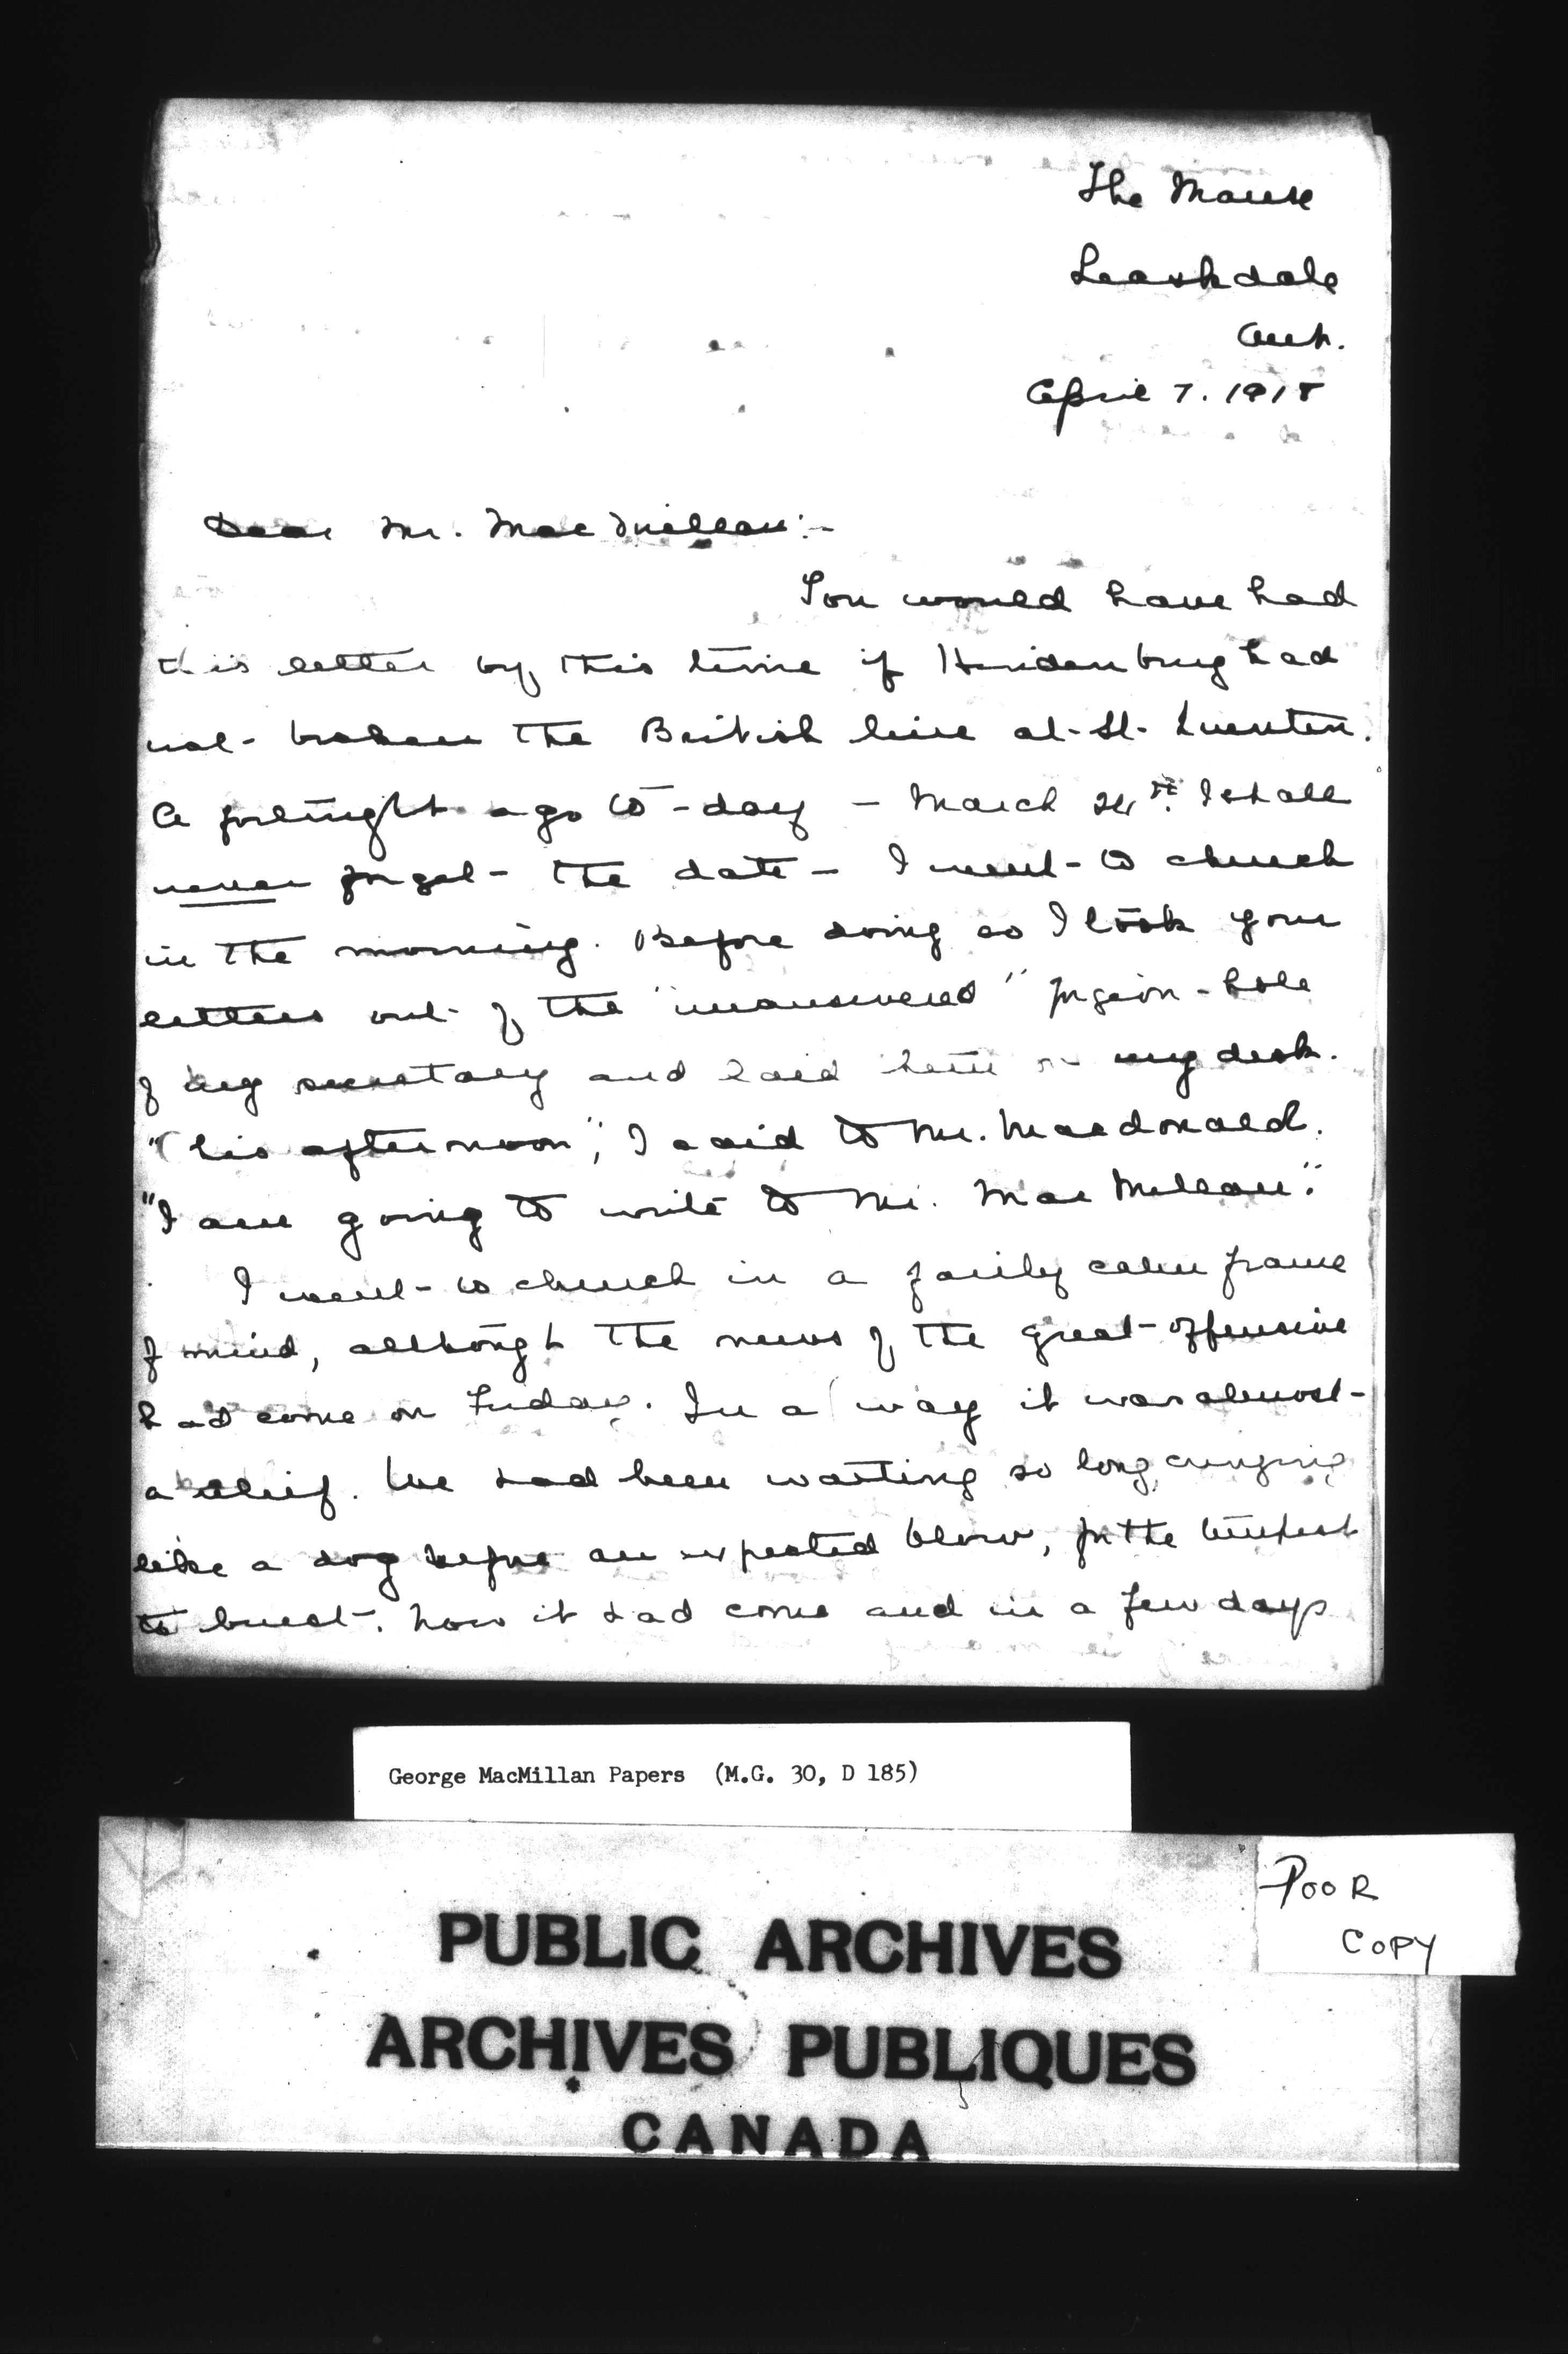 The Manse
Leaskdale
Ont.
April 7. 1918
Dear Mr. MacMillan:-
You would have had
this letter by this time if Hindenburg had
not broken the British line at St. Quentin.
A fortnight ago to-day - March 24th. I shall
never forget the date - I went to church
in the morning. Before doing so I took your
letters out of the "unanswered" pigeon-hole
of my secretary and laid them on my desk.
"This afternoon", I said to Mr. Macdonald.
"I am going to write to Mr. MacMillan."
I went to church in a fairly calm frame
of mind, although the news of the great offensive
had come on Friday. In a way it was almost
a relief. We had been waiting so long, cringing
like a dog before an expected blow, for the tempest
to burst. Now it had come and in a few days
George MacMillan Papers (M.G. 30, D 185)
POOR
COPY
PUBLIC ARCHIVES
ARCHIVES PUBLIQUES
CANADA